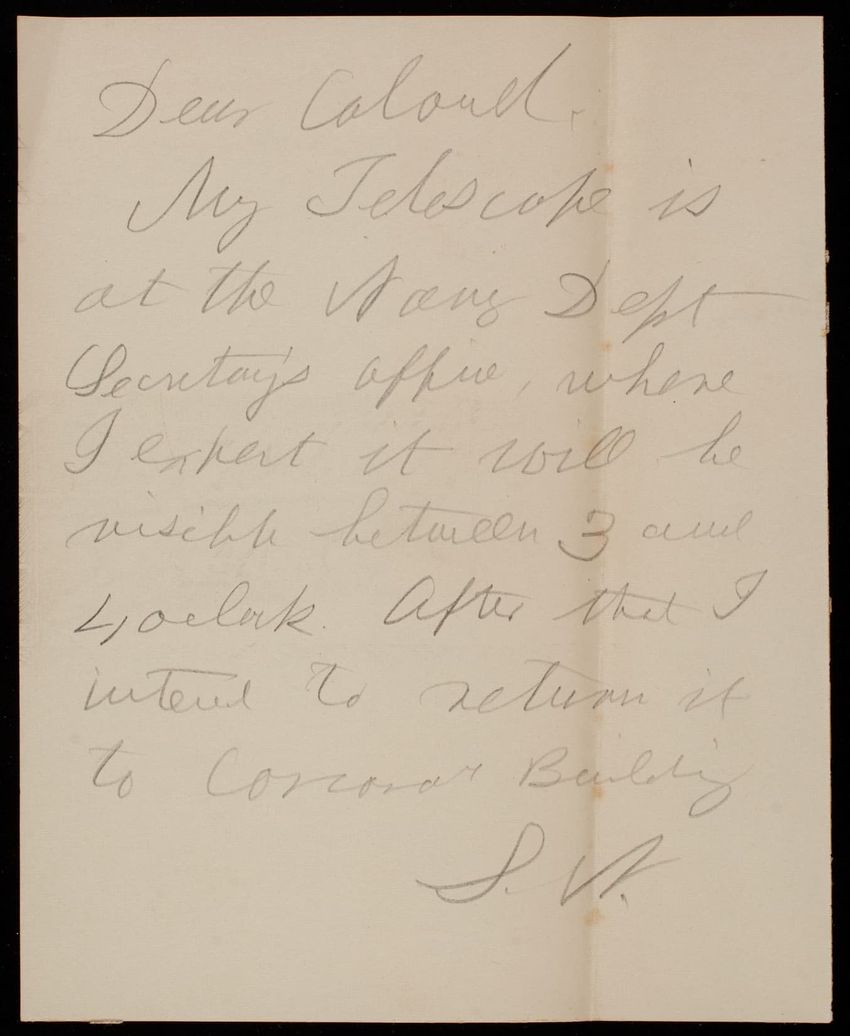 Dear Colonel.
My Telescope is
at the Navy Dept
Secretay's office, where
I expect it will be
visible between 3 and
4, oclock. After that I
intend to return it
to Corcoran Building
S. N.